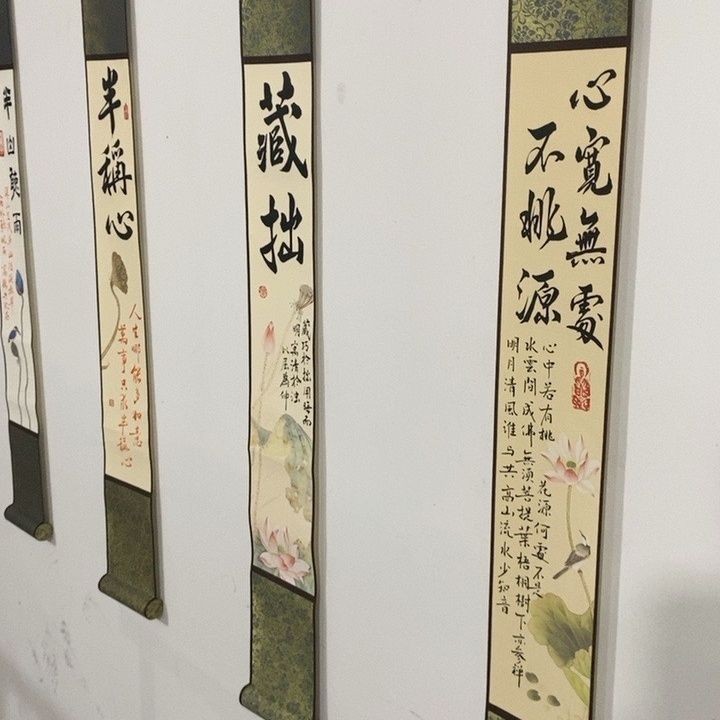 心寬無處
不桃源
心中若有桃花源何處不是
水雲間成佛無須菩提葉梧桐樹下亦參禪
明月清風誰與共高山流水少知音
藏拙
藏巧於拙用晦而
明寓清於濁
以屈為伸
半稱心
人生哪能多如意
萬事只求半稱心
半山聽雨